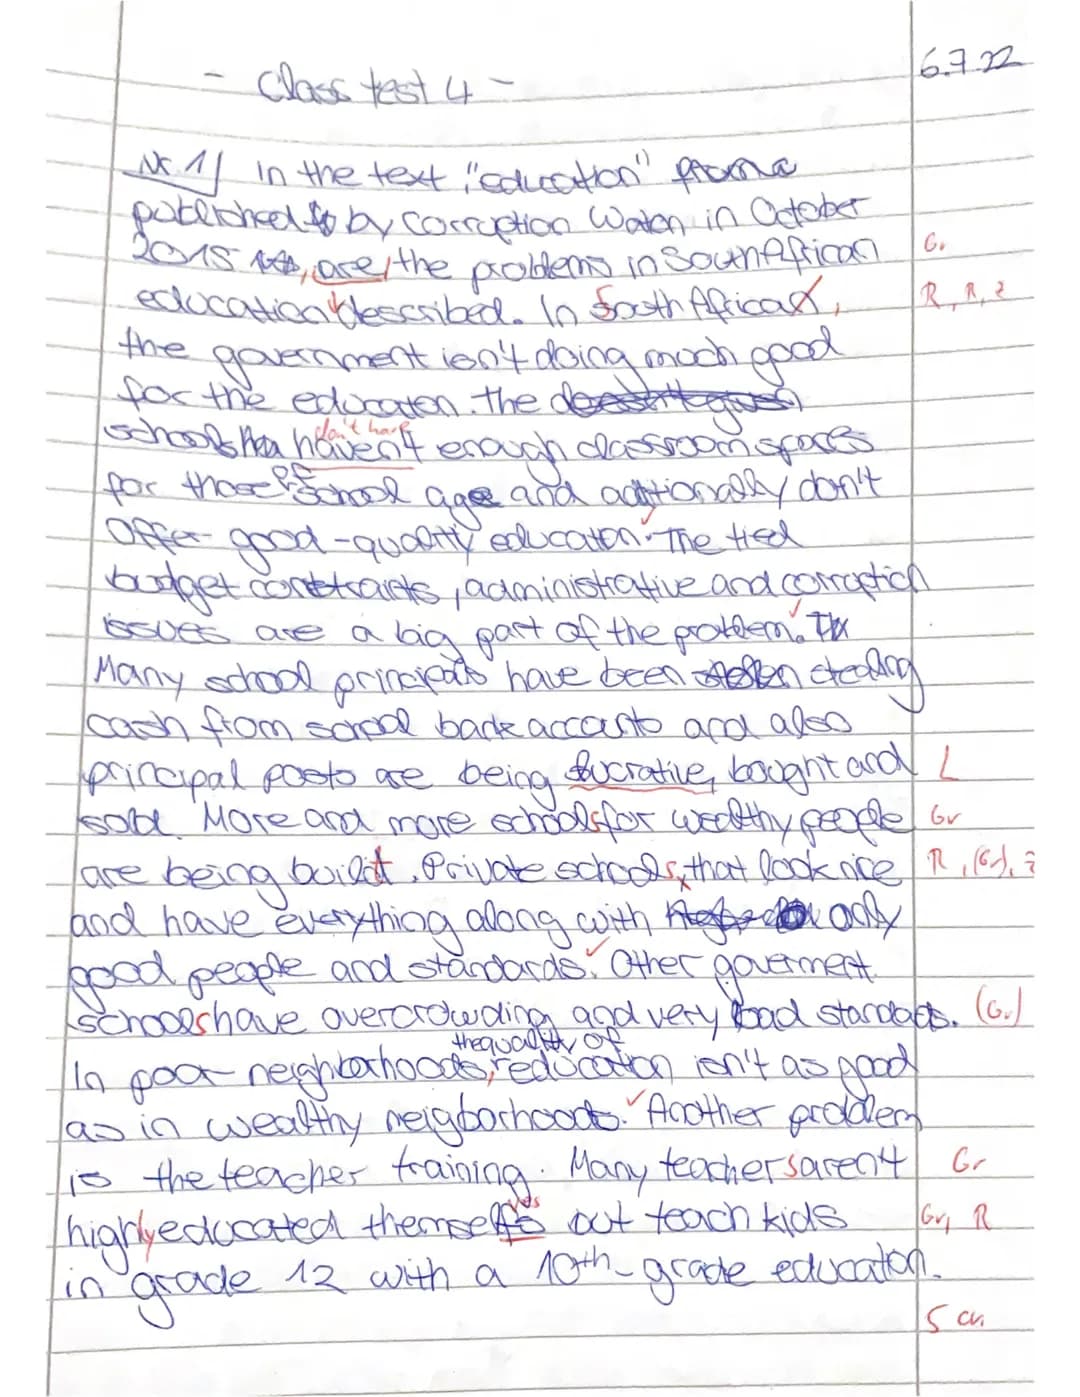 - Class test 4 - 6.7.22
Nr. 1) In the text "education"
published by Corruption Watch in October
2015, are the problems in South African Gr
education described. In South Africa, R, R, Z
the government isn't doing much good
for the education. the
don't have
schools haven't enough classroom spaces
of
for those school age and additionally don't
offer good-quality education. ✓ The tied
budget constraints, administrative and corruption
issues are a big part of the problem. ✓
Many school principals have been stealing
cash from school bank accounts and also
principal posts are being lucrative, bought and L
sold. More and more schools for wealthy people Gr
are being build t. Private schools, that look nice R, (Gr), Z
and have everything along with only
good people and standards. ✓ Other goverment
schools have overcrowding and very bad standards. (Gr)
the quality of
In poor neighborhoods, education isn't as good
as in wealthy neigborhoods. ✓ Another problem
is the teacher training. Many teachers arent Gr
ves
highly educated themselfs but teach kids Gr, R
in grade 12 with a 10th-grade education.